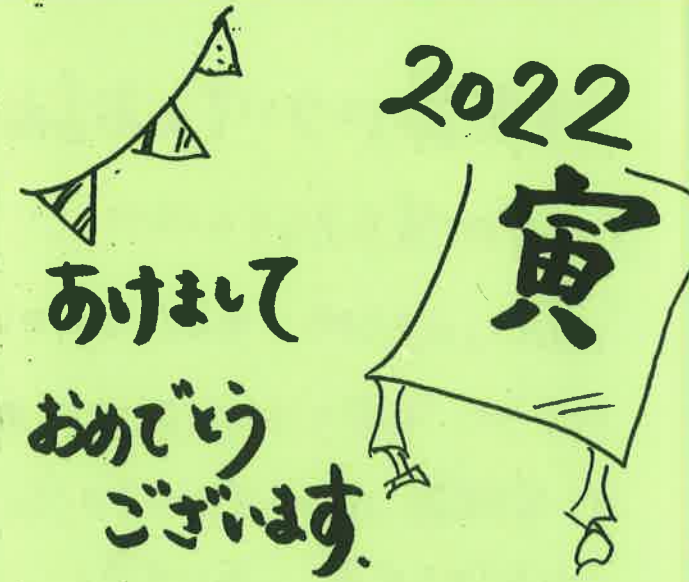 2022
寅
あけまして
おめでとう
ございます.